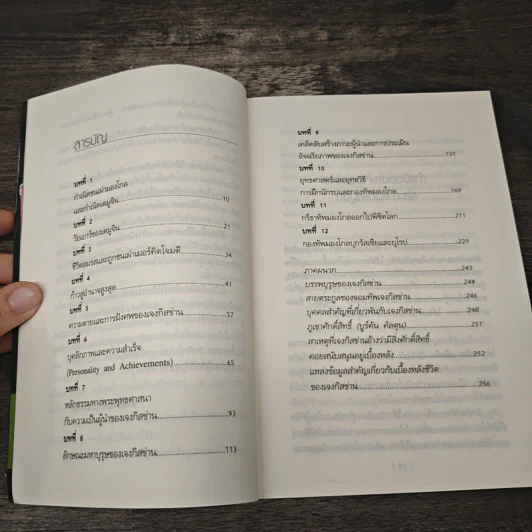 สารบัญ
บทที่ 1
กำเนิดชนเผ่ามองโกล
และกำเนิดเตมูจิน 10
บทที่ 2
วัยเยาว์ของเตมูจิน 21
บทที่ 3
ชีวิตสมรสและถูกชนเผ่าเมอร์คิตโจมตี 34
บทที่ 4
ก้าวสู่อำนาจสูงสุด 41
บทที่ 5
ความตายและการฝังศพของเจงกิสข่าน 57
บทที่ 6
บุคลิกภาพและความสำเร็จ
(Personality and Achievements) 65
บทที่ 7
หลักธรรมทางพระพุทธศาสนา
กับความเป็นผู้นำของเจงกิสข่าน 93
บทที่ 8
ลักษณะมหาบุรุษของเจงกิสข่าน 113
บทที่ 9
เคล็ดลับสร้างภาวะผู้นำและการประเมิน
อัจฉริยภาพของเจงกิสข่าน 131
บทที่ 10
ยุทธศาสตร์และยุทธวิธี
การฝึกนักรบและกองทัพมองโกล 169
บทที่ 11
กรีธาทัพมองโกลออกไปพิชิตโลก 211
บทที่ 12
กองทัพมองโกลบุกรัสเซียและยุโรป 229
ภาคผนวก 243
บรรพบุรุษของเจงกิสข่าน 244
สายตระกูลของจอมทัพเจงกิสข่าน 246
บุคคลสำคัญที่เกี่ยวพันกับเจงกิสข่าน 248
ภูเขาศักดิ์สิทธิ์ (บูร์คัน คัลดุน) 251
สาเหตุที่เจงกิสข่านอ้างว่ามีสิ่งศักดิ์สิทธิ์
คอยสนับสนุนอยู่เบื้องหลัง 252
แหล่งข้อมูลสำคัญเกี่ยวกับเบื้องหลังชีวิต
ของเจงกิสข่าน 256